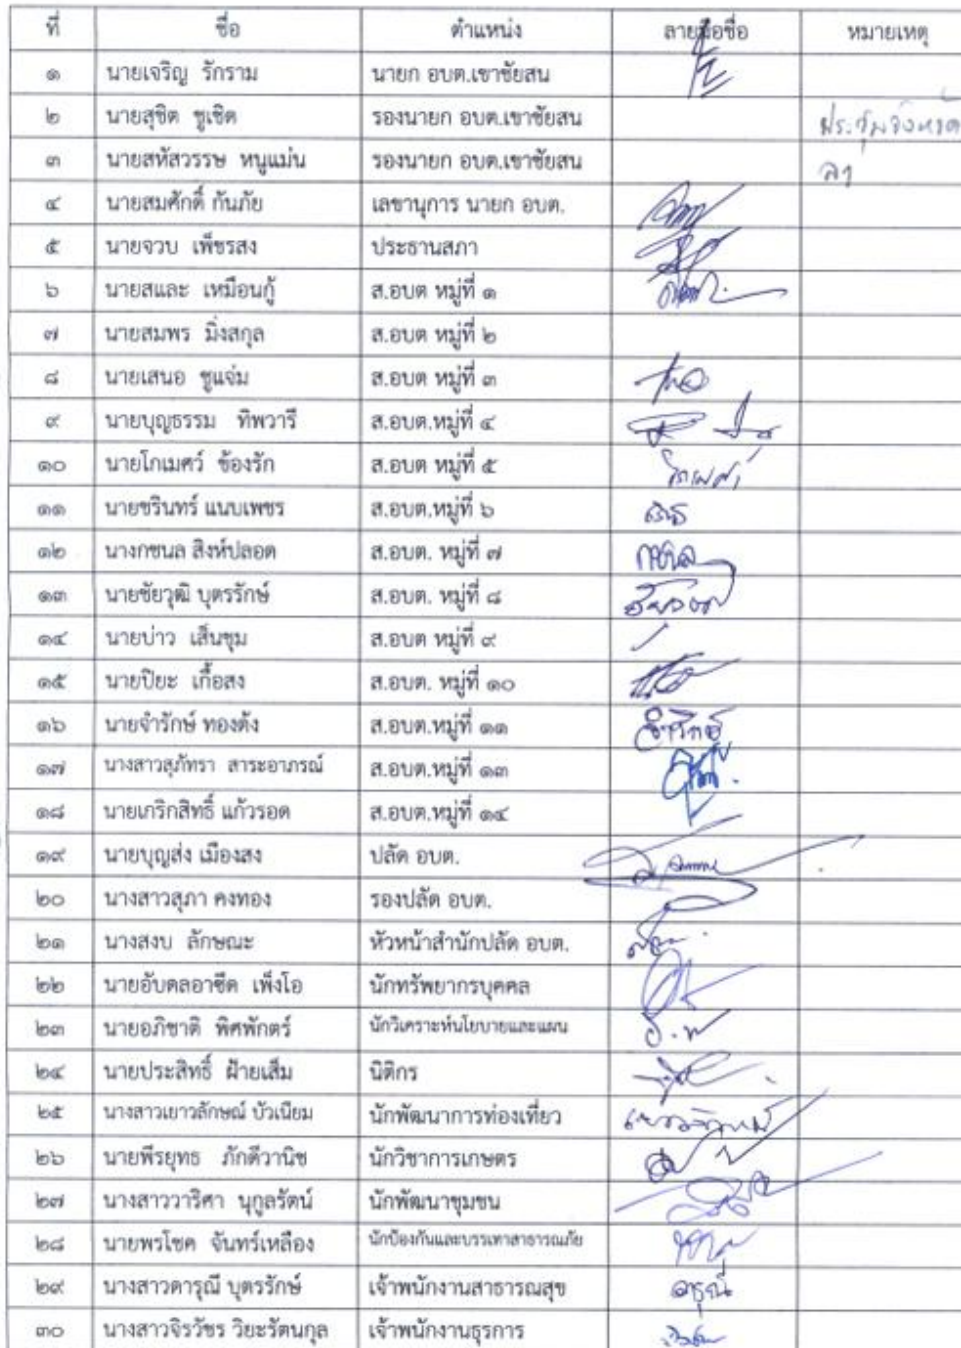 ที่ ชื่อ ตำแหน่ง ลายมือชื่อ หมายเหตุ
๑ นายเจริญ รักราม นายก อบต.เขาชัยสน
๒ นายสุชิต ชูเชิด รองนายก อบต.เขาชัยสน ประชุมจังหวัด
๓ นายสหัสวรรษ หนูแม่น รองนายก อบต.เขาชัยสน ลา
๔ นายสมศักดิ์ กันภัย เลขานุการ นายก อบต.
๕ นายจวบ เพ็ชรสง ประธานสภา
๖ นายสและ เหมือนกู้ ส.อบต หมู่ที่ ๑
๗ นายสมพร มิ่งสกุล ส.อบต หมู่ที่ ๒
๘ นายเสนอ ชูแจ่ม ส.อบต หมู่ที่ ๓
๙ นายบุญธรรม ทิพวารี ส.อบต.หมู่ที่ ๔
๑๐ นายโกเมศว์ ช้องรัก ส.อบต หมู่ที่ ๕ โกเมศว์
๑๑ นายชรินทร์ แนบเพชร ส.อบต.หมู่ที่ ๖
๑๒ นางกชนล สิงห์ปลอด ส.อบต. หมู่ที่ ๗ กชนล
๑๓ นายชัยวุฒิ บุตรรักษ์ ส.อบต. หมู่ที่ ๘ ชัยวุฒิ
๑๔ นายบ่าว เส็นชุม ส.อบต หมู่ที่ ๙
๑๕ นายปิยะ เกื้อสง ส.อบต. หมู่ที่ ๑๐
๑๖ นายจำรักษ์ ทองตั้ง ส.อบต.หมู่ที่ ๑๑ จำรักษ์
๑๗ นางสาวสุภัทรา สาระอาภรณ์ ส.อบต.หมู่ที่ ๑๓
๑๘ นายเกริกสิทธิ์ แก้วรอด ส.อบต.หมู่ที่ ๑๔
๑๙ นายบุญส่ง เมืองสง ปลัด อบต.
๒๐ นางสาวสุภา คงทอง รองปลัด อบต.
๒๑ นางสงบ ลักษณะ หัวหน้าสำนักปลัด อบต.
๒๒ นายอับดลอาซีด เพ็งโอ นักทรัพยากรบุคคล
๒๓ นายอภิชาติ พิศพักตร์ นักวิเคราะห์นโยบายและแผน อ.พ
๒๔ นายประสิทธิ์ ฝ้ายเส็ม นิติกร
๒๕ นางสาวเยาวลักษณ์ บัวเนียม นักพัฒนาการท่องเที่ยว เยาวลักษณ์
๒๖ นายพีรยุทธ ภักดีวานิช นักวิชาการเกษตร
๒๗ นางสาววาริศา นุกูลรัตน์ นักพัฒนาชุมชน
๒๘ นายพรโชค จันทร์เหลือง นักป้องกันและบรรเทาสาธารณภัย
๒๙ นางสาวดารุณี บุตรรักษ์ เจ้าพนักงานสาธารณสุข ดารุณี
๓๐ นางสาวจิรวัชร วิยะรัตนกุล เจ้าพนักงานธุรการ